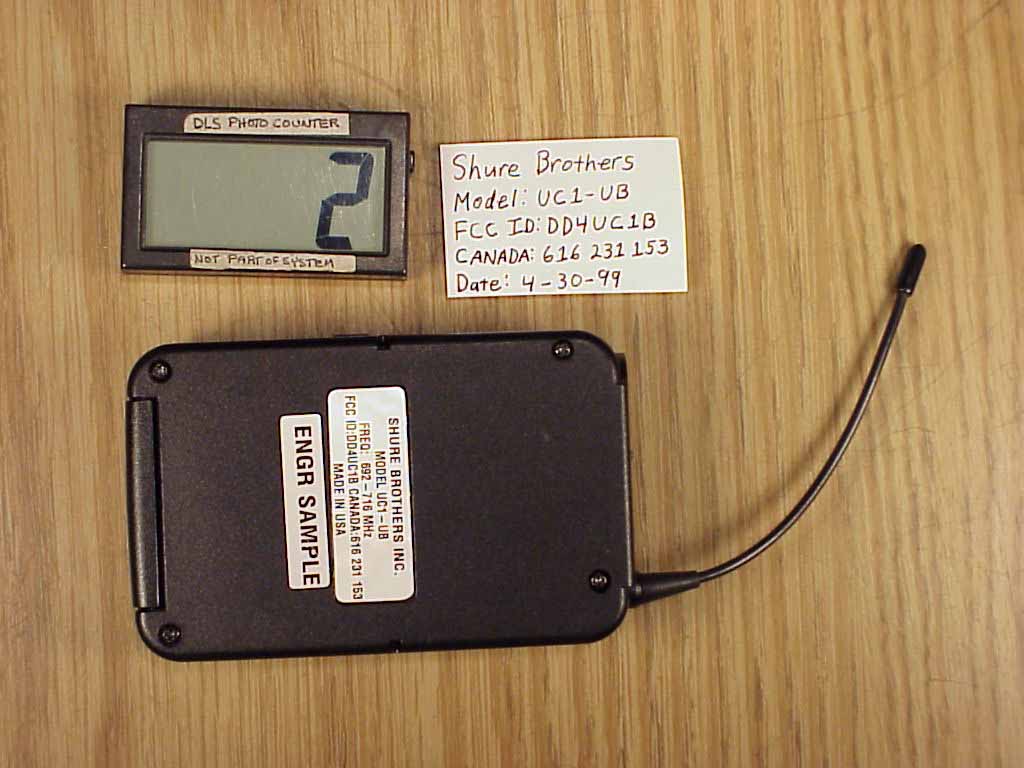 DLS PHOTO COUNTER
2
NOT PART OF SYSTEM
Shure Brothers
Model: UC1-UB
FCC ID: DD4UC1B
CANADA: 616 231 153
Date: 4-30-99
SHURE BROTHERS INC.
MODEL UC1-UB
FREQ: 692-716 MHz
FCC ID:DD4UC1B CANADA:616 231 153
MADE IN USA
ENGR SAMPLE